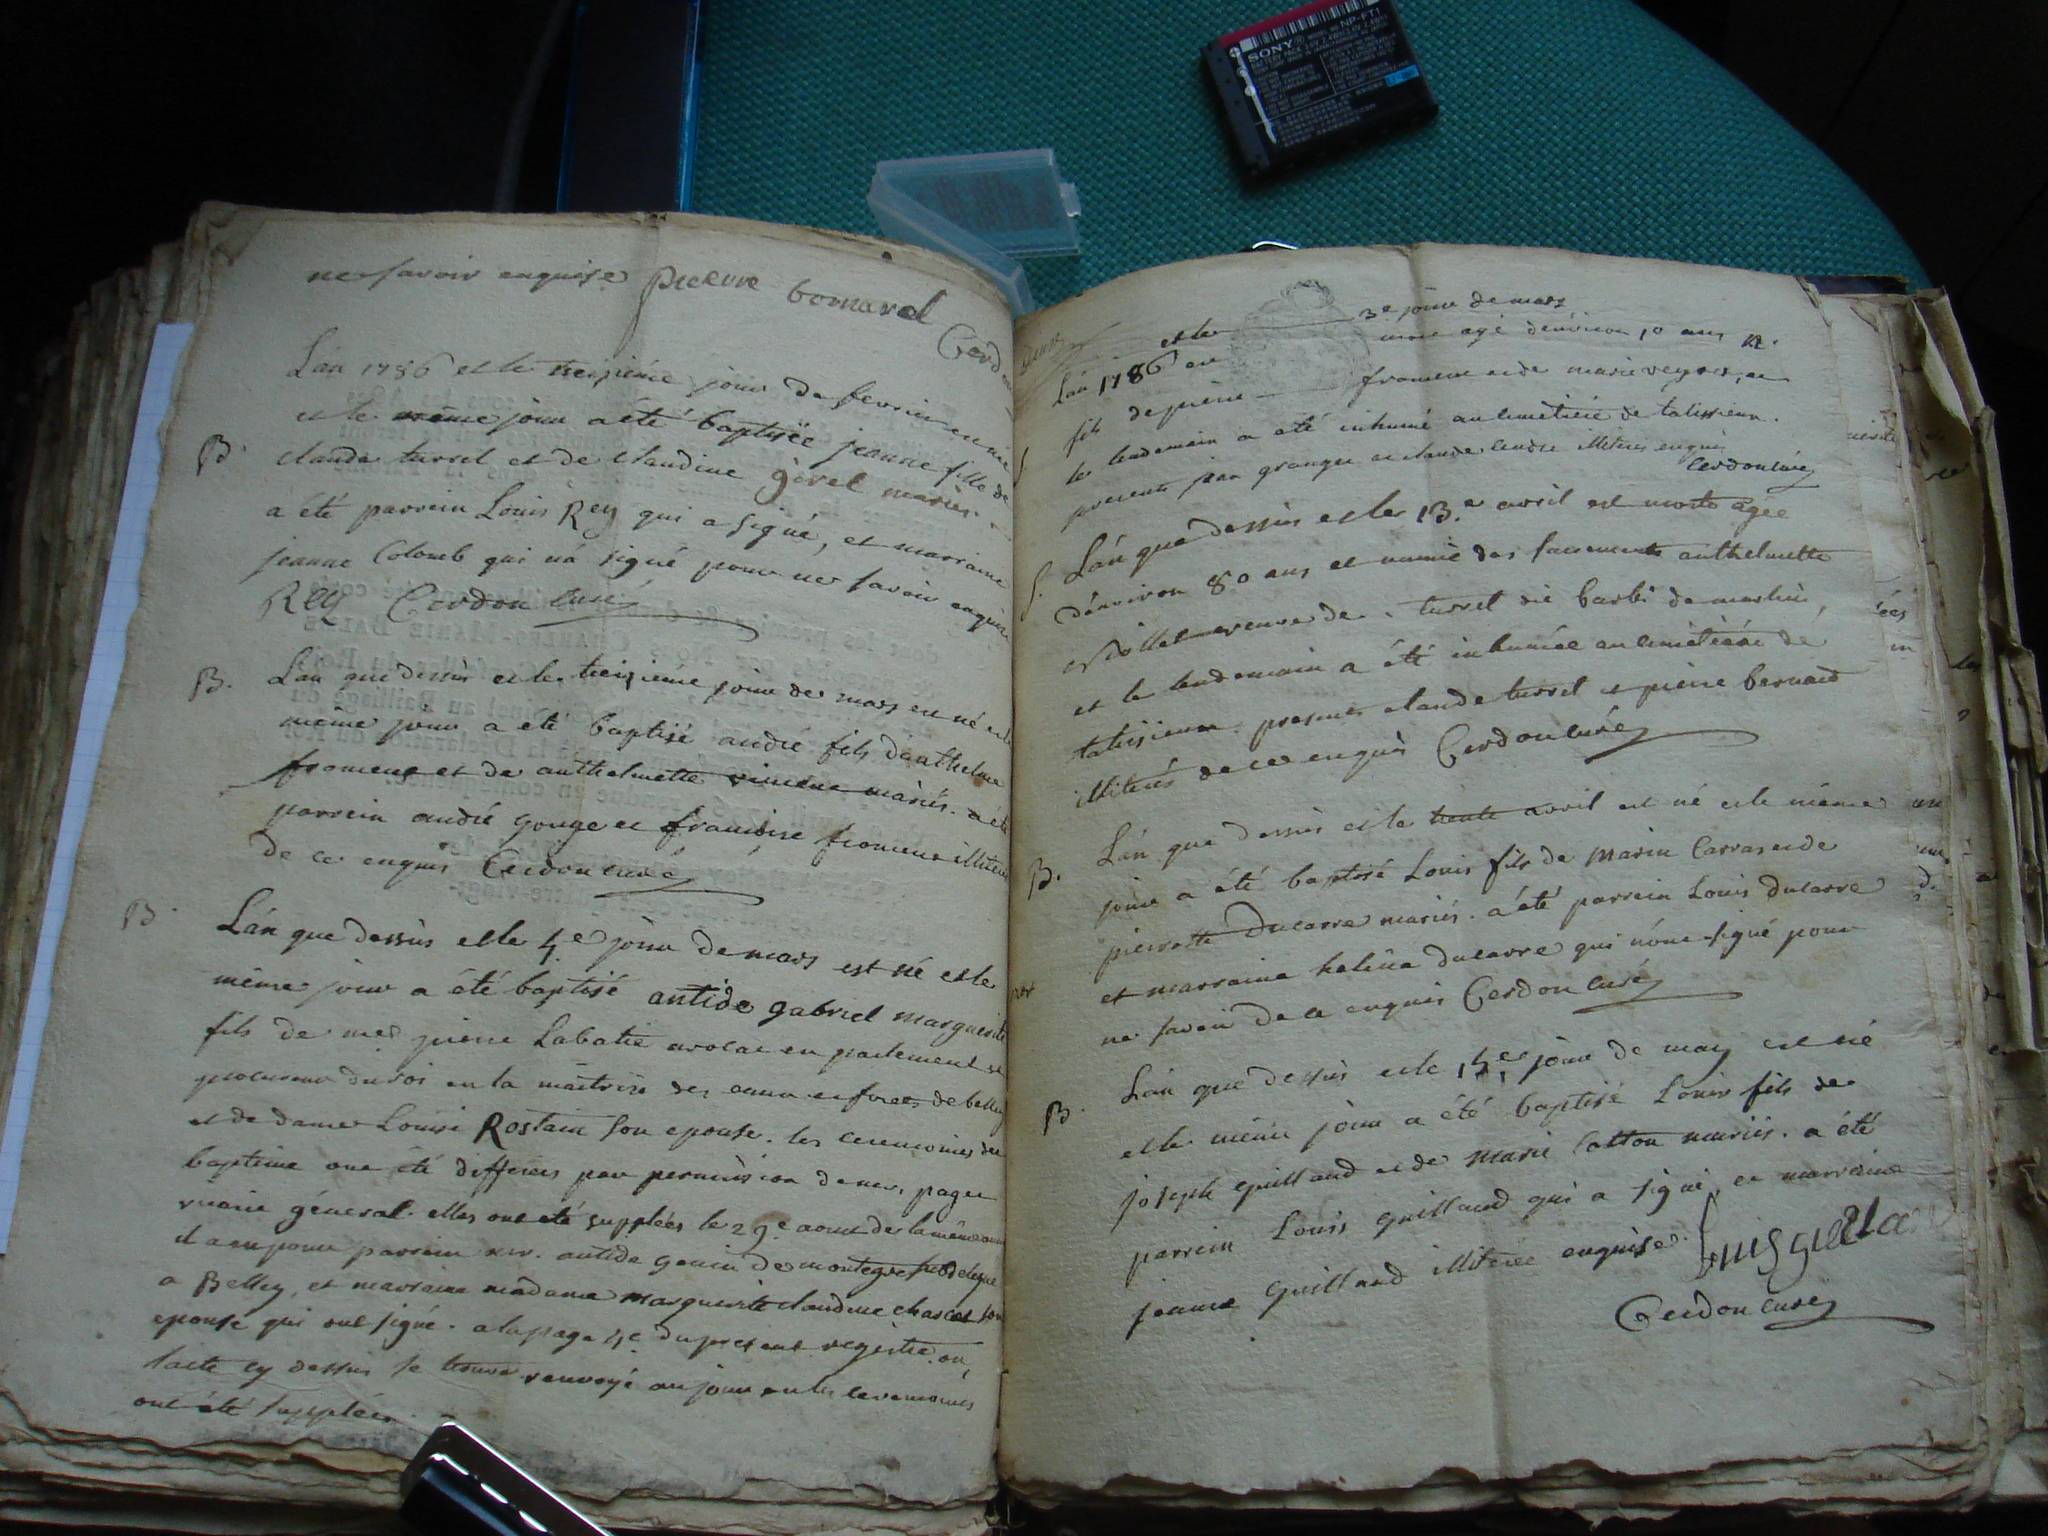 ne savoir enquise pierre bornarel
Cerdon
L'an 1786 et le treizième jour de fevrier est née
et le même jour a été baptisée jeanne fille de
B. claude turrel et de claudine girel mariés.
a été parrein Louis Rey qui a signé, et marraine
jeanne Colomb qui n'a signé pour ne savoir enquise
Rey Cerdon curé
B. L'an que dessus et le treizième jour de mars est né et le
même jour a été baptisé andré fils d'anthelme
froment et de anthelmette mariés. a été
parrein andré gouge et françoise froment illiteres
de ce enquis Cerdon curé
B. L'an que dessus et le 4e jour de mars est né et le
même jour a été baptisé antide gabriel marguerite
fils de me pierre Labatie avocat en parlement et
procureur du roi en la maitrise des eaux et forets de belley
et de dame Louise Rostain son epouse. les ceremonies du
baptême ont été differées par permission de mr. page
vicaire général. elles ont été supplées le 29e aout de la même année
il a eu pour parrein mr. antide genin de
a Belley, et marraine madame marguerite claudine son
epouse qui ont signé. a la page 4e du present registre ou
l'acte cy dessus se trouve renvoyé au jour ou les ceremonies
ont été supplées.
L'an 1786 et le 3e jour de mars
mort agé d'environ 10 ans
fils de pierre froment et de marie veyret, et
le lendemain a été inhumé au cimetière de talissieu.
presents jean granger et claude illiteres enquis
Cerdon curé
S. L'an que dessus et le 13e avril est morte agée
d'environ 80 ans et munie des sacements anthelmette
veuve de turret dit barbi de
et le lendemain a été inhumée au cimetière de
talissieux. presents claude turrel et pierre bernard
illiterés de ce enquis Cerdon curé
B. L'an que dessus et le trente avril est né et le même
jour a été baptisé Louis fils de Marin Carras et de
pierrette Ducarre mariés. a été parrein Louis ducarre
et marraine heleine ducarre qui n'ont signé pour
ne savoir de ce enquis Cerdon curé
B. L'an que dessus et le 15e jour de may est né
et le même jour a été baptisé Louis fils de
joseph guilland et de Marie Cotton mariés. a été
parrein Louis guilland qui a signé, et marraine
jeanne guilland illiterée enquise. Luis
Cerdon curé
SONY
NP-FT1